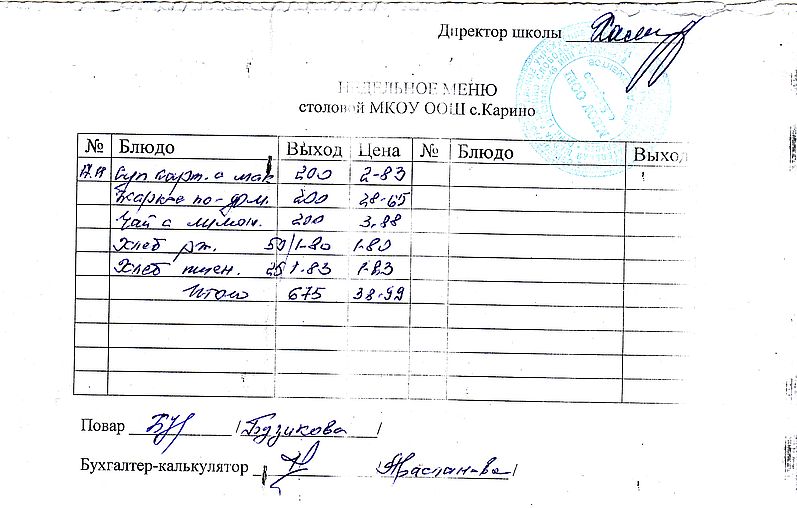 Директор школы
НЕДЕЛЬНОЕ МЕНЮ
столовой МКОУ ООШ с.Карино
№ Блюдо Выход Цена № Блюдо Выход
Суп карт. с мак 200 2-83
Жарк-е по-дом. 200 28-65
Чай с лимон. 200 3,88
Хлеб рж. 50/1-80 1-80
Хлеб пшен. 25/1-83 1-83
Итого 675 38-99
Повар / Будзикова /
Бухгалтер-калькулятор / /